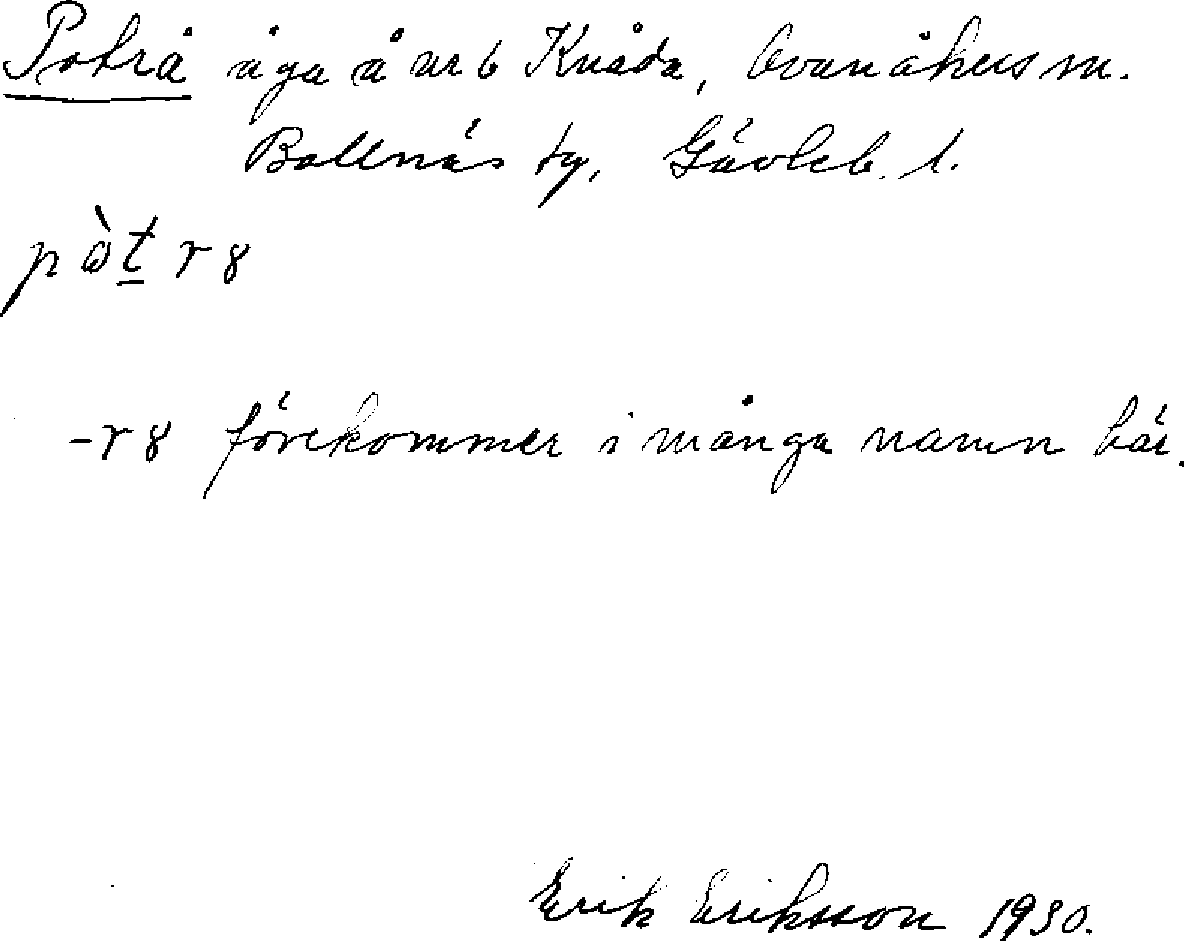 Potrå äga å nr 6 Knåda, Ovanåkers sn.
Bollnäs tg, Gävleb. l.
pòt r8
-r8 förekommer i många namn här.
Erik Eriksson 1930.